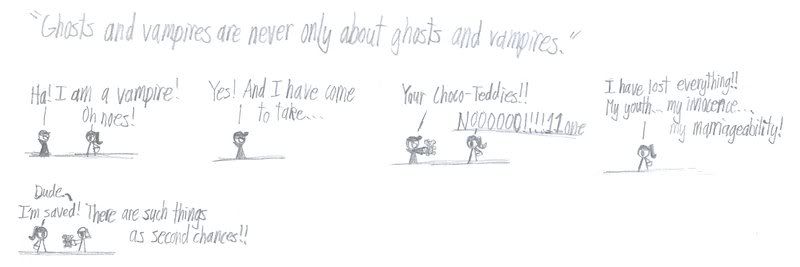 "Ghosts and vampires are never only about ghosts and vampires."
Ha! I am a vampire!
Oh noes!
Yes! And I have come
to take...
Your Choco-Teddies!!
NOOOOOO!!!!11one
I have lost everything!!
My youth... my innocence...
my marriageability!
Dude.
I'm saved! There are such things
as second chances!!